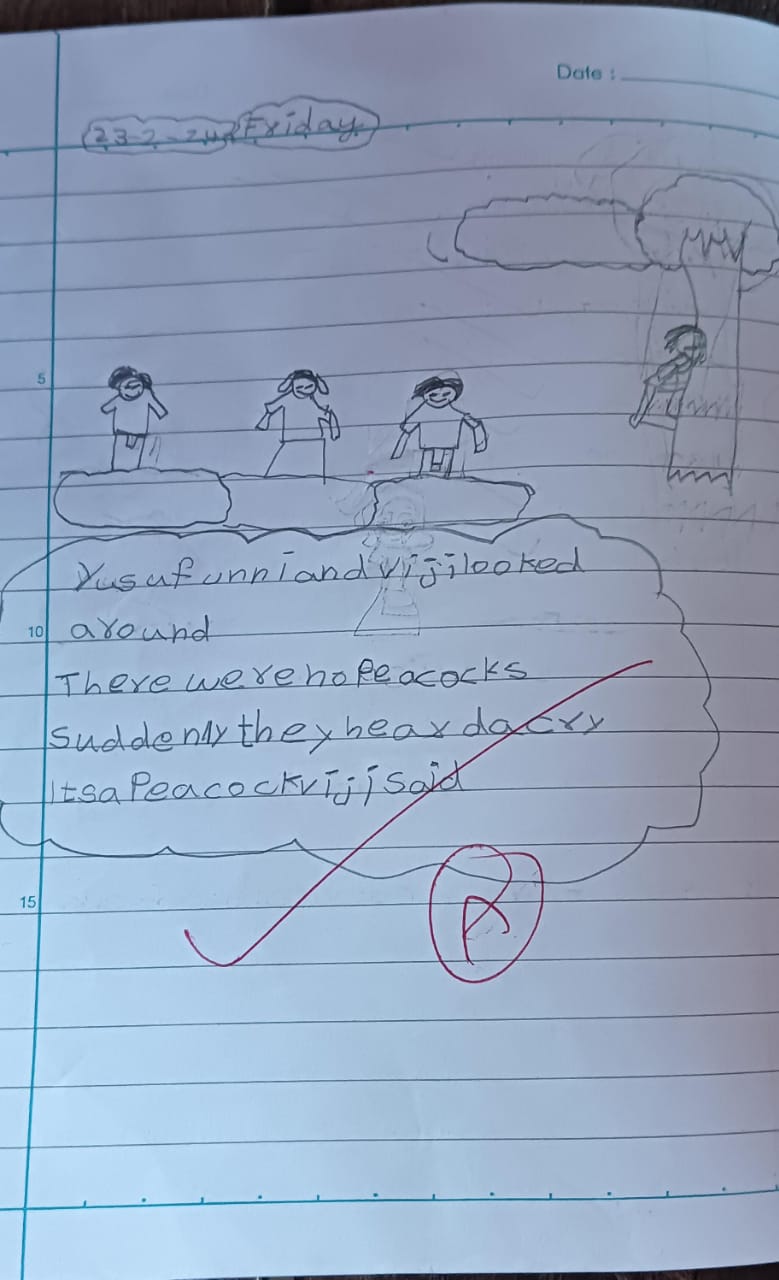 Date :
23-2-24 Friday
5
Yusuf unni and viji looked
10
around
There were no Peacocks
Suddenly they heard a cry
Itsa Peacock viji said
15
R